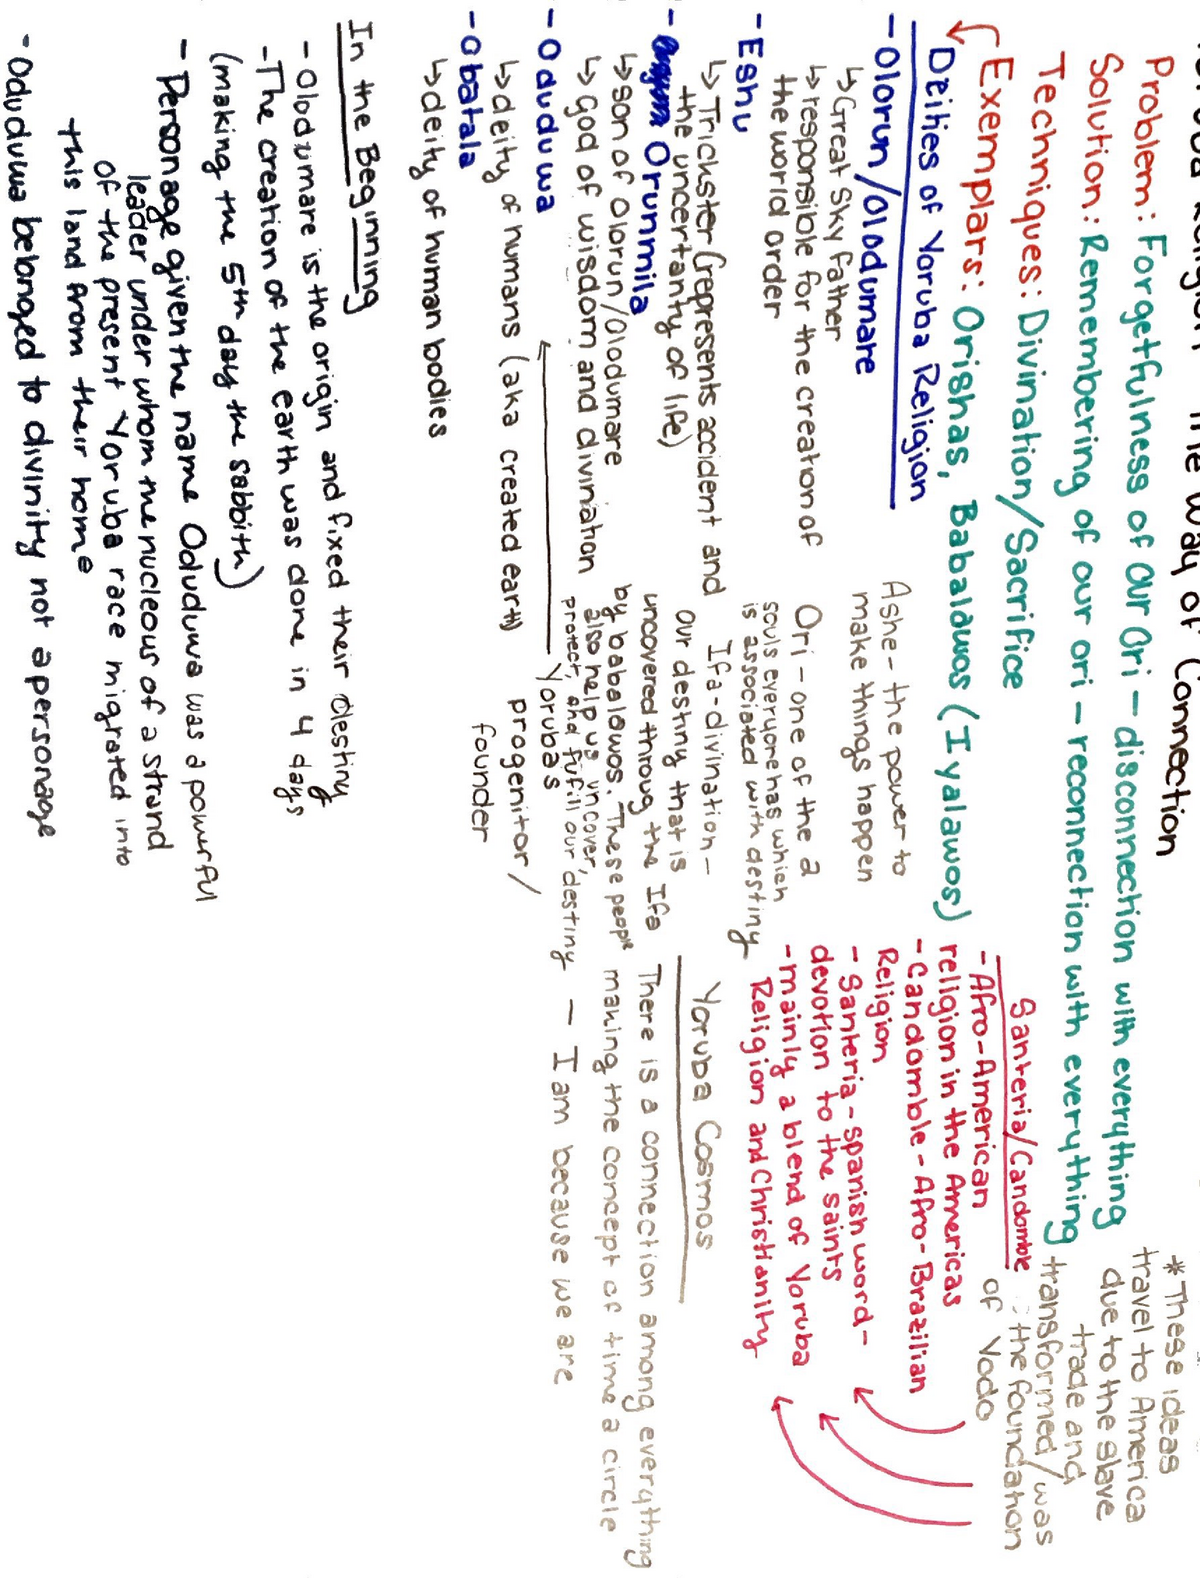 The Way of Connection
Problem: Forgetfulness of Our Ori - disconnection with everything
Solution: Remembering of our ori - reconnection with everything
Techniques: Divination/Sacrifice
Exemplars: Orishas, Babalawos (Iyalawos)
Deities of Yoruba Religion
- Olorun/Olodumare
↳ Great Sky Father
↳ responsible for the creation of
the world order
- Eshu
↳ Trickster (represents accident and
the uncertanty of life)
- Orunmila
↳ son of Olorun/Olodumare
↳ god of wisdom and diviniation
- Oduduwa
↳ deity of humans (aka created earth)
- Obatala
↳ deity of human bodies
Yorubas
progenitor/
founder
Ashe - the power to
make things happen
Ori - one of the 2
souls everyone has which
is associated with destiny
Ifa - divination -
our destiny that is
uncovered throug the Ifa
by babalawos. These people
also help us uncover,
protect, and fufill our destiny
Santeria/Candomble
- Afro-American
religion in the Americas
- Candomble - Afro-Brazilian
Religion
- Santeria - spanish word -
devotion to the saints
- mainly a blend of Yoruba
Religion and Christianity
*These ideas
travel to America
due to the slave
trade and
transformed/was
the foundation
of Vodo
Yoruba Cosmos
There is a connection among everything
making the concept of time a circle
- I am because we are
In the Beginning
- Olodumare is the origin and fixed their destiny
- The creation of the earth was done in 4 days
(making the 5th day the sabbith)
- Personage given the name Oduduwa was a powerful
leader under whom the nucleous of a strand
of the present Yoruba race migrated into
this land from their home
- Oduduwa belonged to divinity not a personage